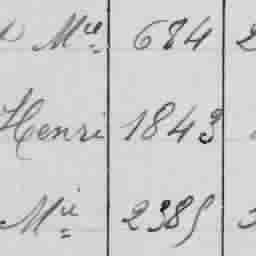 Mie 684 2
Henri 1843
Mie 2385